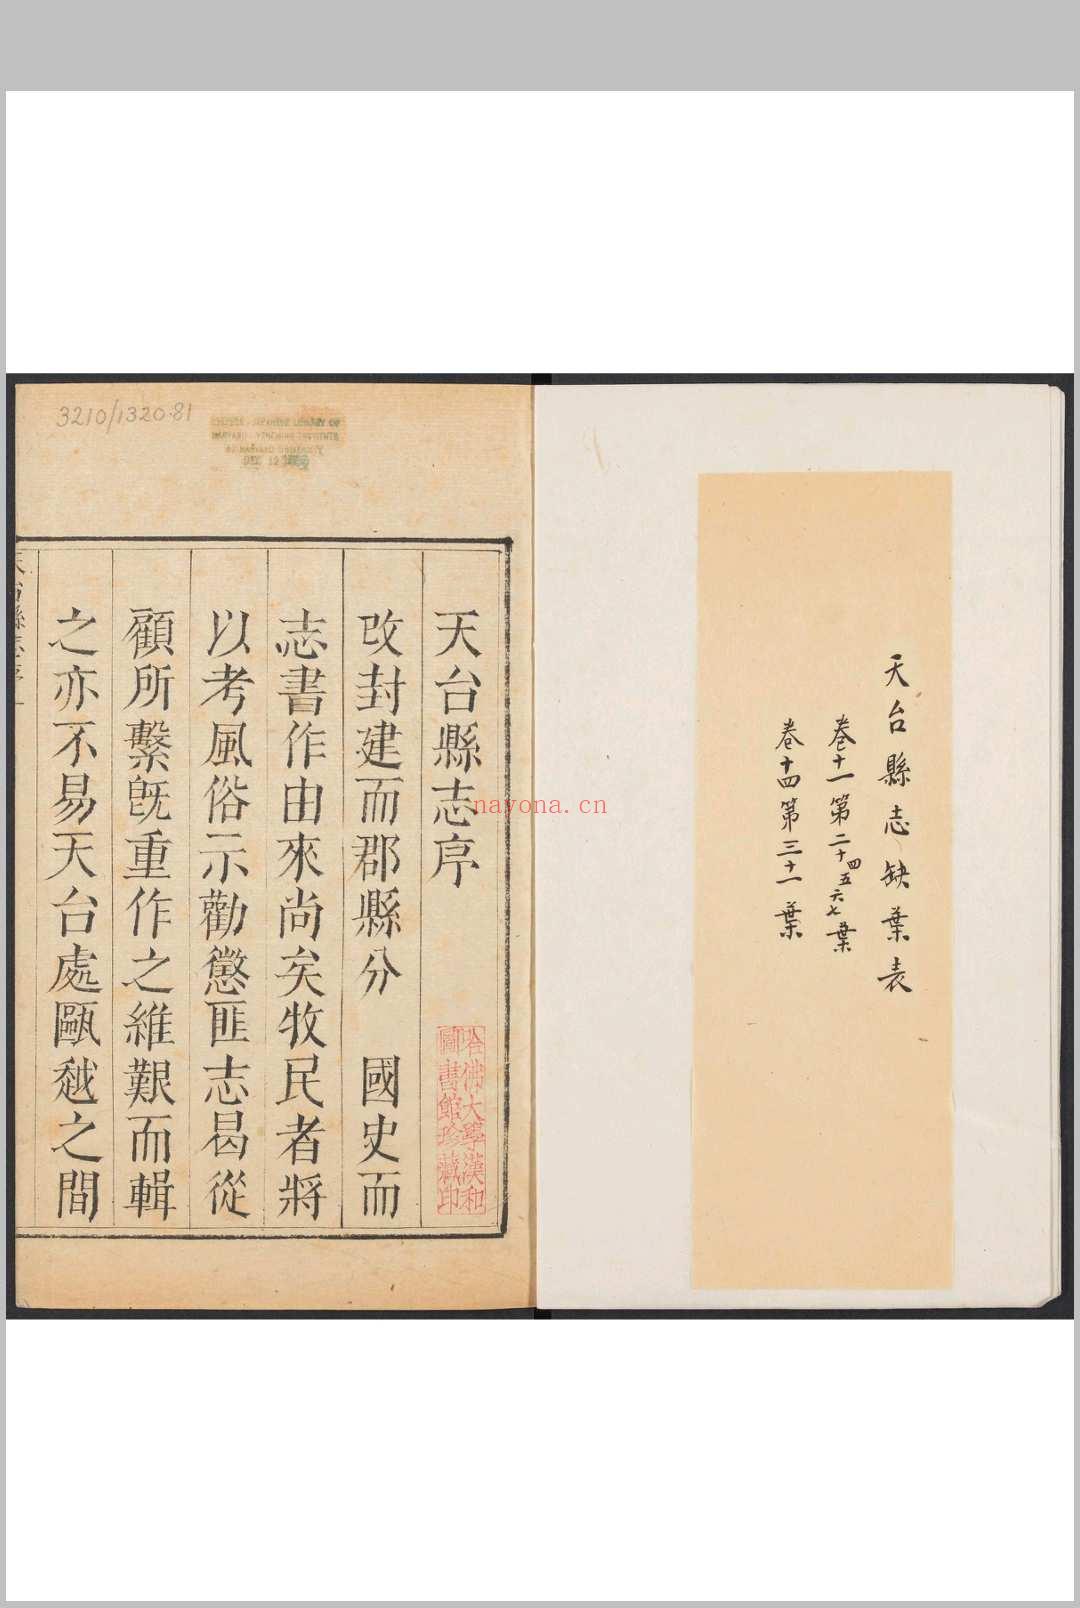 天台縣志缺葉表
卷十一第二十四五六七葉
卷十四第三十一葉
3210/1320.81
天台縣志序
改封建而郡縣分　國史而
志書作由來尚矣牧民者將
以考風俗示勸懲匪志曷從
顧所繫旣重作之維艱而輯
之亦不易天台處甌越之間
哈佛大學漢和
圖書館珍藏印
天台縣志序
nayona.cn